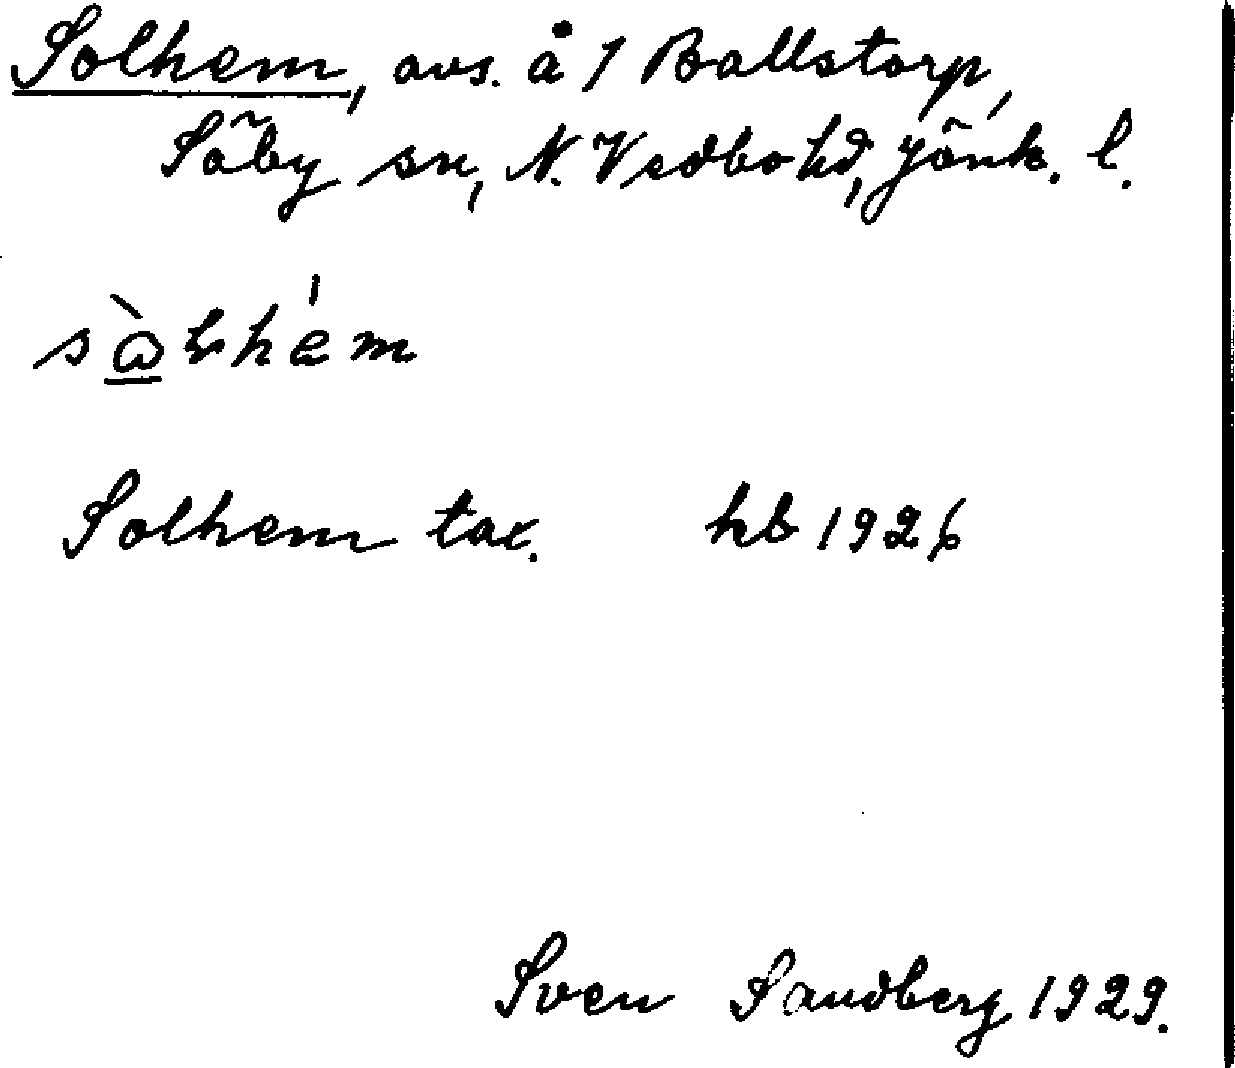 Solhem, avs. å 1 Ballstorp,
Säby sn, N. Vedbo hd, Jönk. l.
Solhem tax. hb 1926
Sven Sandberg 1929.